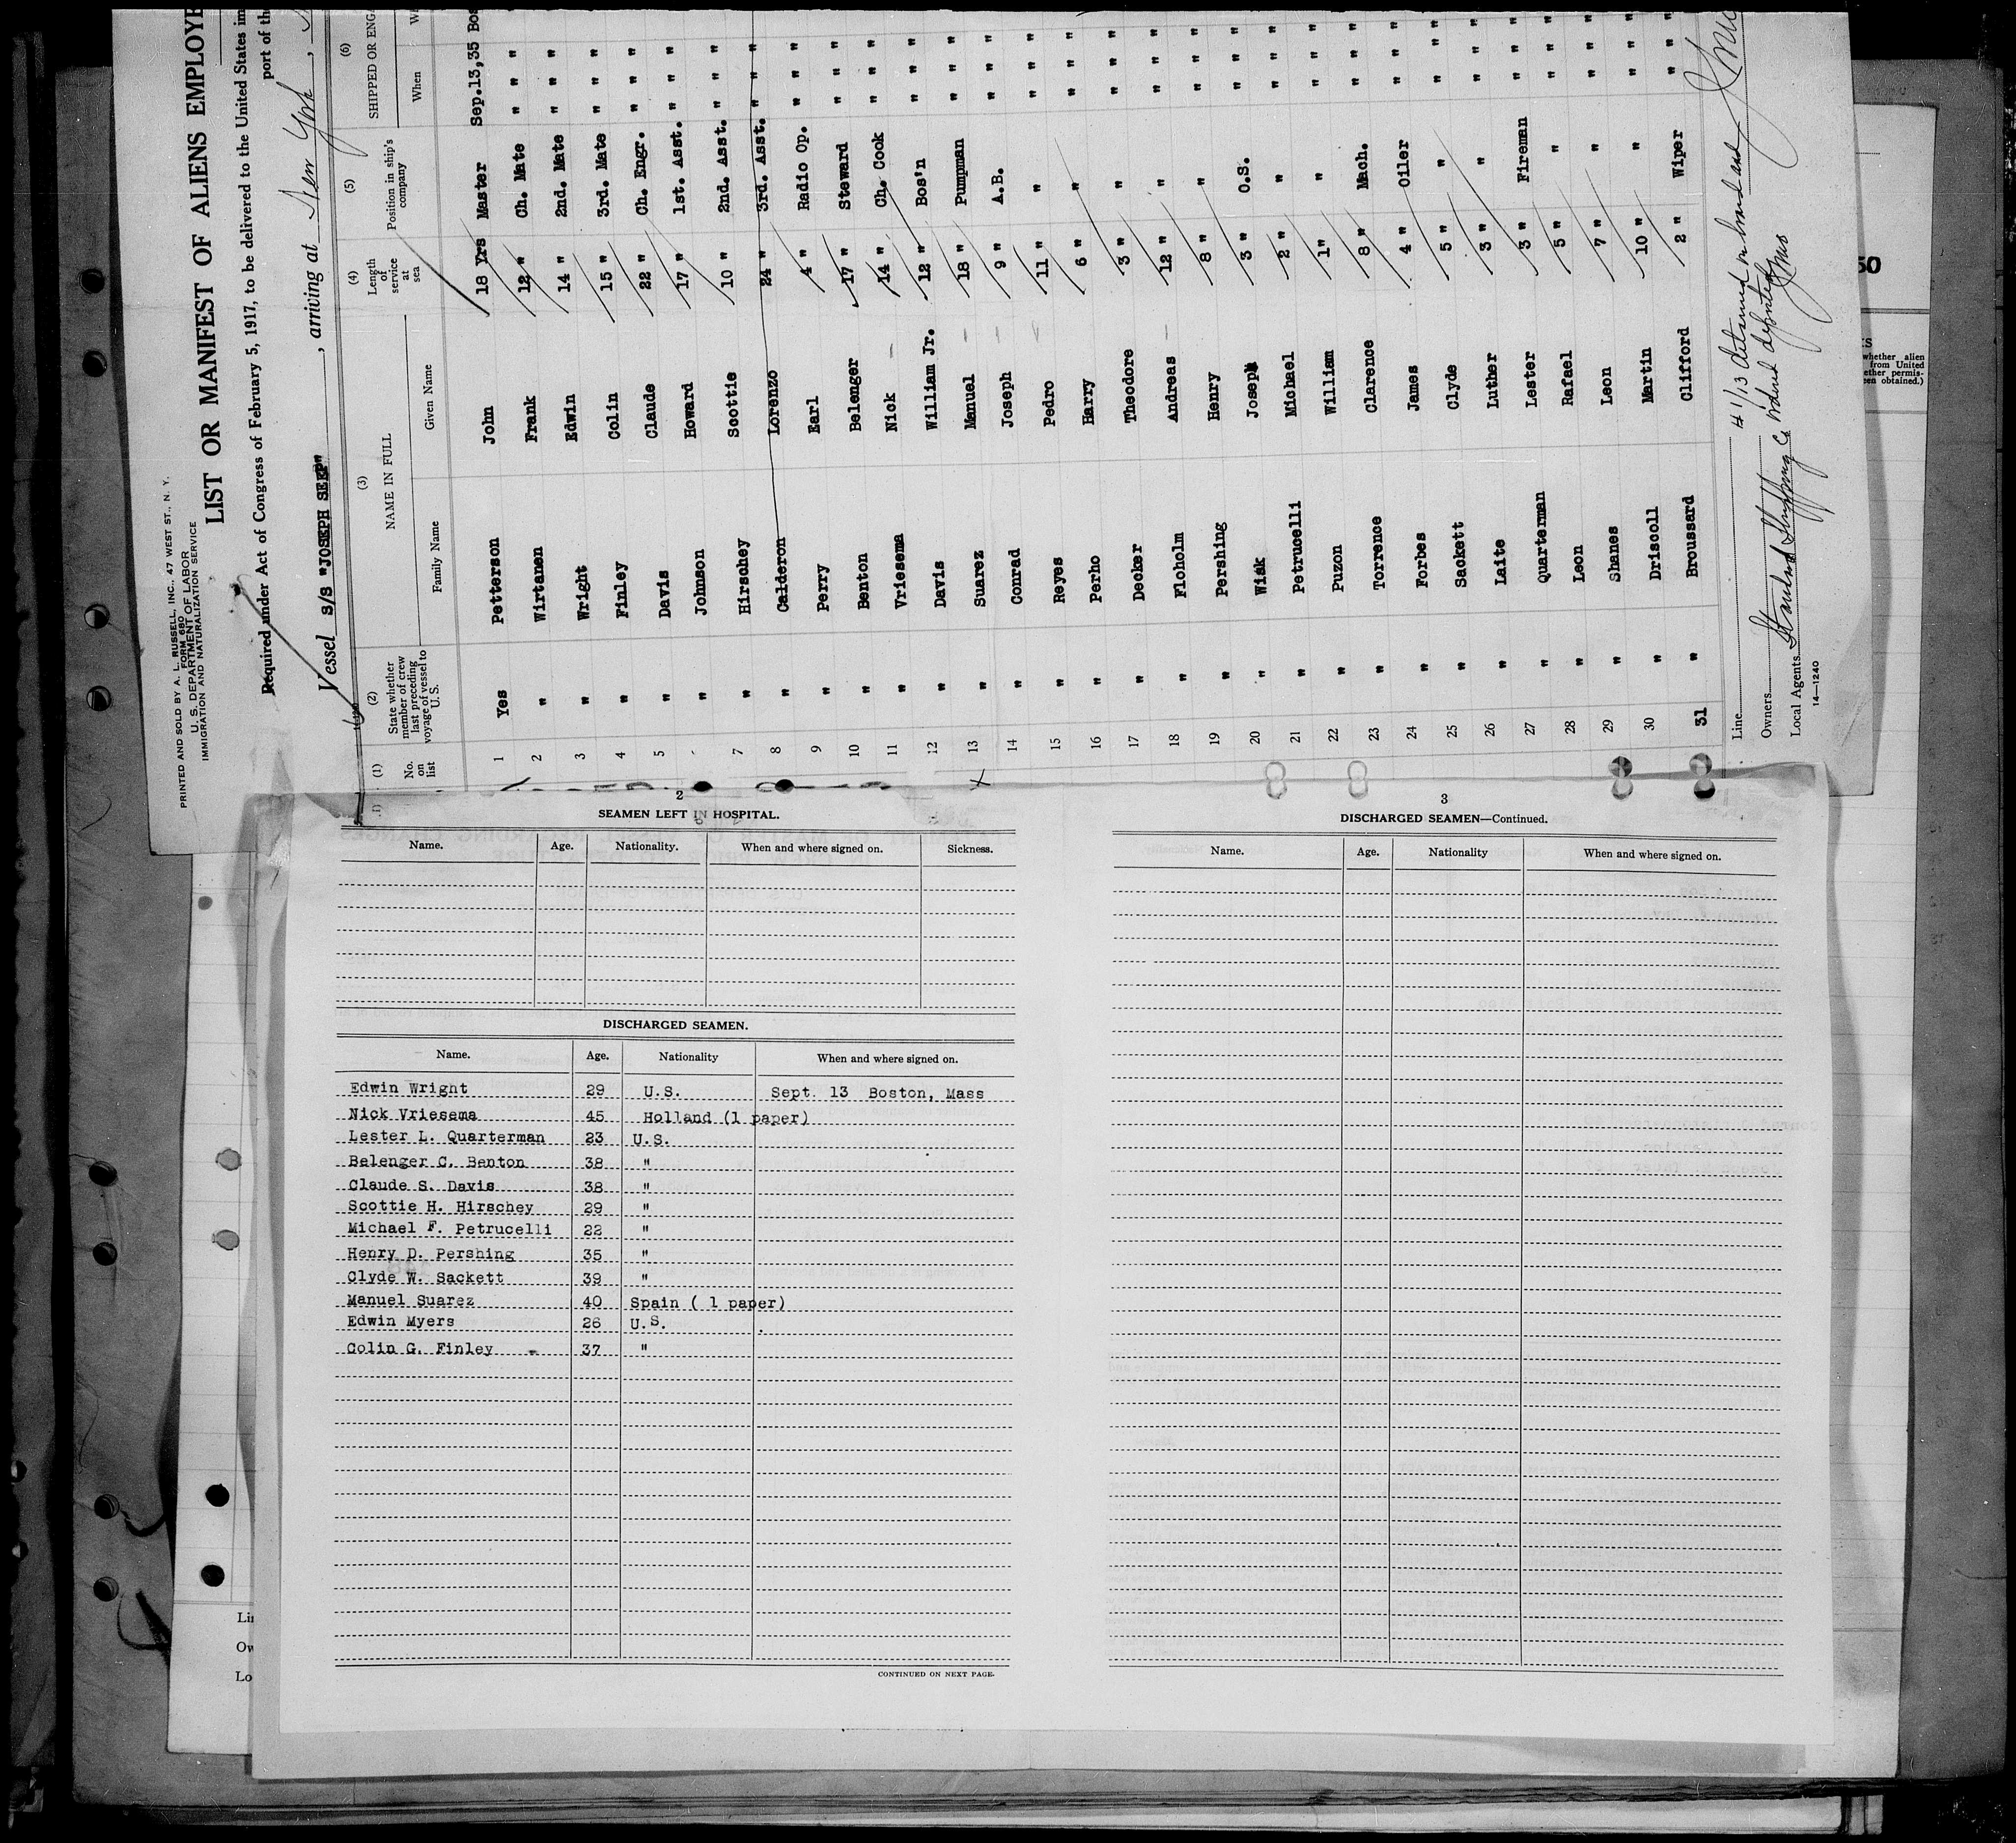 PRINTED AND SOLD BY A. L. RUSSELL, INC., 47 WEST ST., N. Y.
FORM 680
U. S. DEPARTMENT OF LABOR
IMMIGRATION AND NATURALIZATION SERVICE
LIST OR MANIFEST OF ALIENS EMPLOYE
Required under Act of Congress of February 5, 1917, to be delivered to the United States im
port of th
Vessel S/S "JOSEPH SEEP", arriving at New York,
(1) (2) (3) (4) (5) (6)
No. on list State whether member of crew last preceding voyage of vessel to U. S. NAME IN FULL Family Name Given Name Length of service at sea Position in ship's company SHIPPED OR ENGA When
1 Yes Petterson John 18 Yrs Master Sep.13,35 Bos
2 " Wirtanen Frank 12 " Ch. Mate " " "
3 " Wright Edwin 14 " 2nd. Mate " " "
4 " Finley Colin 15 " 3rd. Mate " " "
5 " Davis Claude 22 " Ch. Engr. " " "
" Johnson Howard 17 " 1st. Asst. " " "
7 " Hirschey Scottie 10 " 2nd. Asst. " " "
8 " Calderon Lorenzo 24 " 3rd. Asst. " " "
9 " Perry Earl 4 " Radio Op. " " "
10 " Benton Belenger 17 " Steward " " "
11 " Vriesema Nick 14 " Ch. Cook " " "
12 " Davis William Jr. 12 " Bos'n " " "
13 " Suarez Manuel 18 " Pumpman " " "
14 " Conrad Joseph 9 " A.B. " " "
15 " Reyes Pedro 11 " " " " "
16 " Perho Harry 6 " " " " "
17 " Decker Theodore 3 " " " " "
18 " Floholm Andreas 12 " " " " "
19 " Pershing Henry 8 " " " " "
20 " Wisk Joseph 3 " O.S. " " "
21 " Petrucelli Michael 2 " " " " "
22 " Puzon William 1" " " " "
23 " Torrence Clarence 8 " Mach. " " "
24 " Forbes James 4 " Oiler " " "
25 " Sackett Clyde 5 " " " " "
26 " Laite Luther 3 " " " " "
27 " Quarterman Lester 3 " Fireman " " "
28 " Leon Rafael 5 " " " " "
29 " Shanes Leon 7 " " " " "
30 " Driscoll Martin 10 " " " " "
31 " Broussard Clifford 2 " Wiper " " "
Line # 1/13 detained on board and
Owners Standard Shipping Co ordered deported
Local Agents
14—1240
50
whether alien
from United
ether permis-
een obtained.)
2
SEAMEN LEFT IN HOSPITAL.
Name. Age. Nationality. When and where signed on. Sickness.
DISCHARGED SEAMEN.
Name. Age. Nationality When and where signed on.
Edwin Wright 29 U.S. Sept. 13 Boston, Mass
Nick Vriesema 45 Holland (1 paper)
Lester L. Quarterman 23 U.S.
Belenger C. Benton 38 "
Claude S. Davis 38 "
Scottie H. Hirschey 29 "
Michael F. Petrucelli 22 "
Henry D. Pershing 35 "
Clyde W. Sackett 39 "
Manuel Suarez 40 Spain ( 1 paper)
Edwin Myers 26 U.S.
Colin G. Finley - 37 "
CONTINUED ON NEXT PAGE.
3
DISCHARGED SEAMEN—Continued.
Name. Age. Nationality When and where signed on.
Li
Ow
Lo